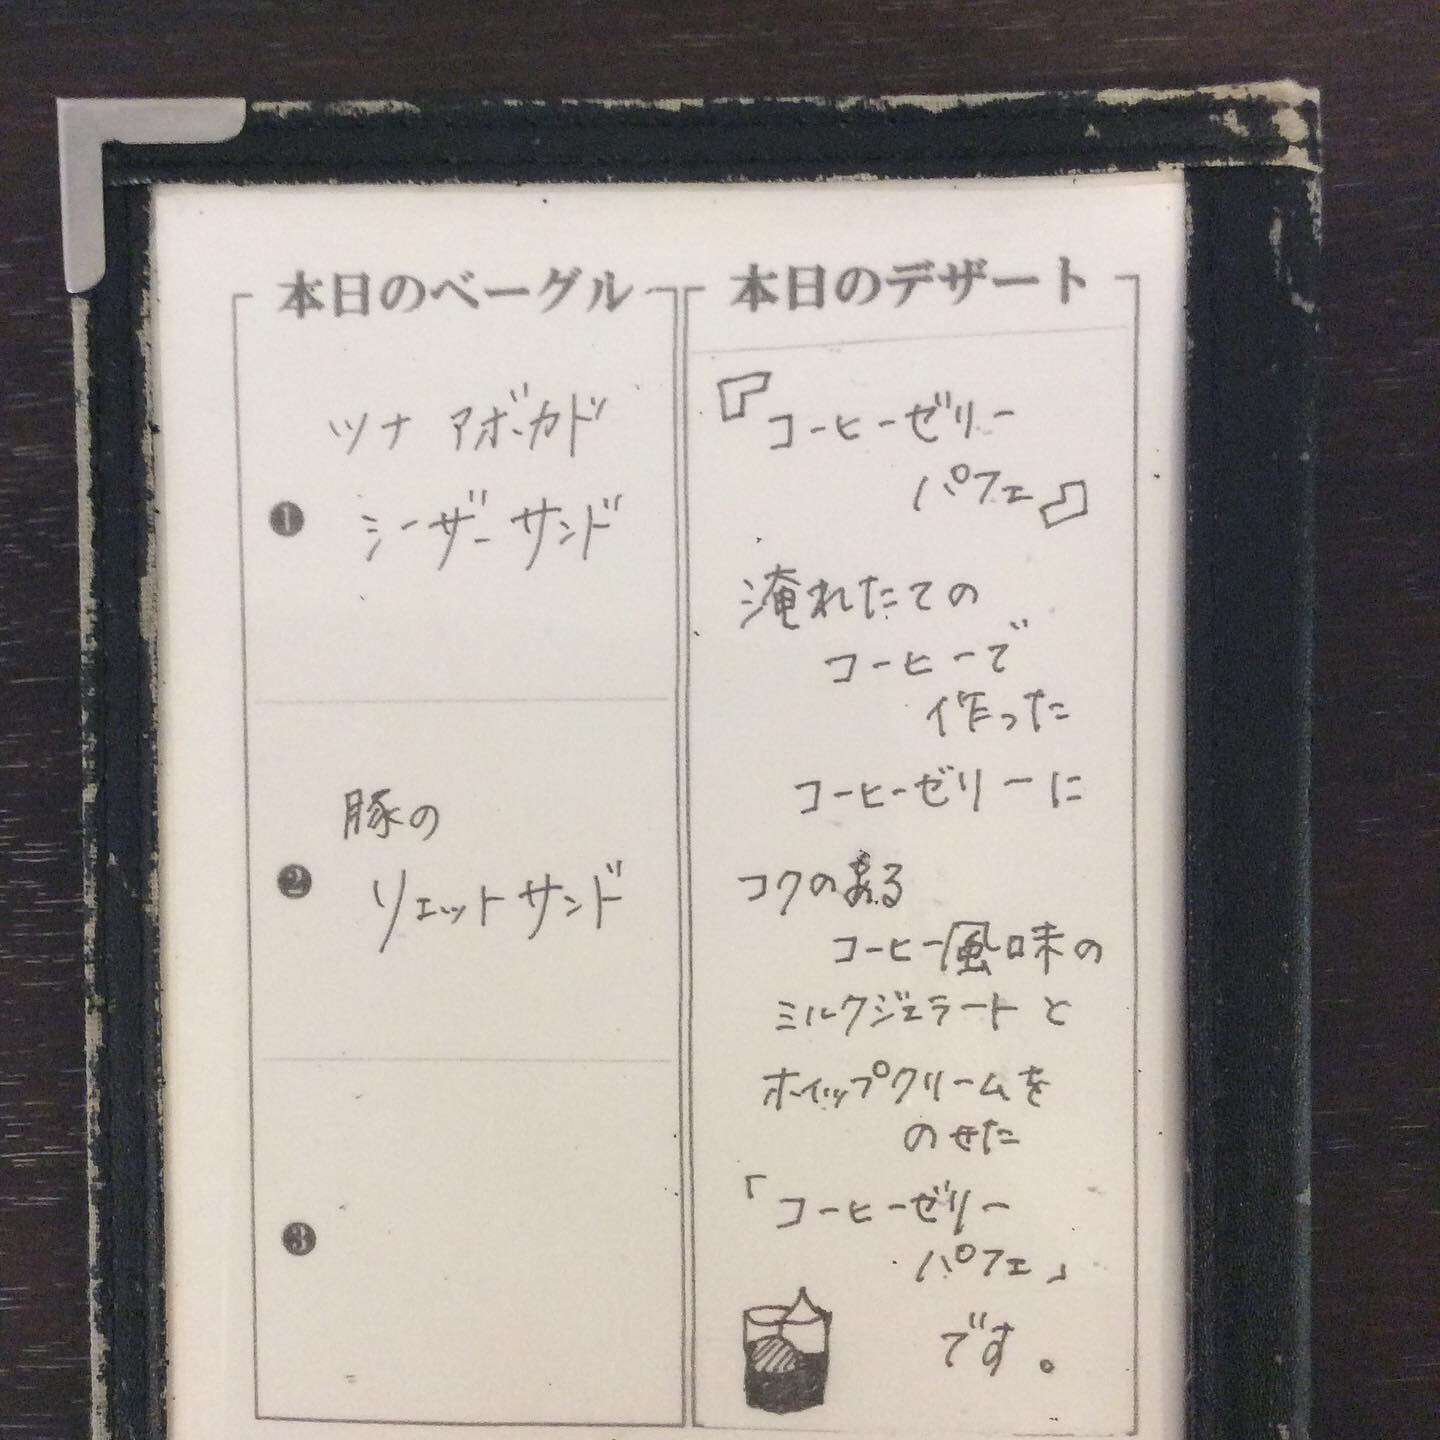 本日のベーグル
ツナ アボカド
❶ シーザーサンド
豚の
❷ リエットサンド
❸
本日のデザート
『コーヒーゼリー
パフェ』
淹れたての
コーヒーで
作った
コーヒーゼリーに
コクのある
コーヒー風味の
ミルクジェラートと
ホイップクリームを
のせた
「コーヒーゼリー
パフェ」
です。